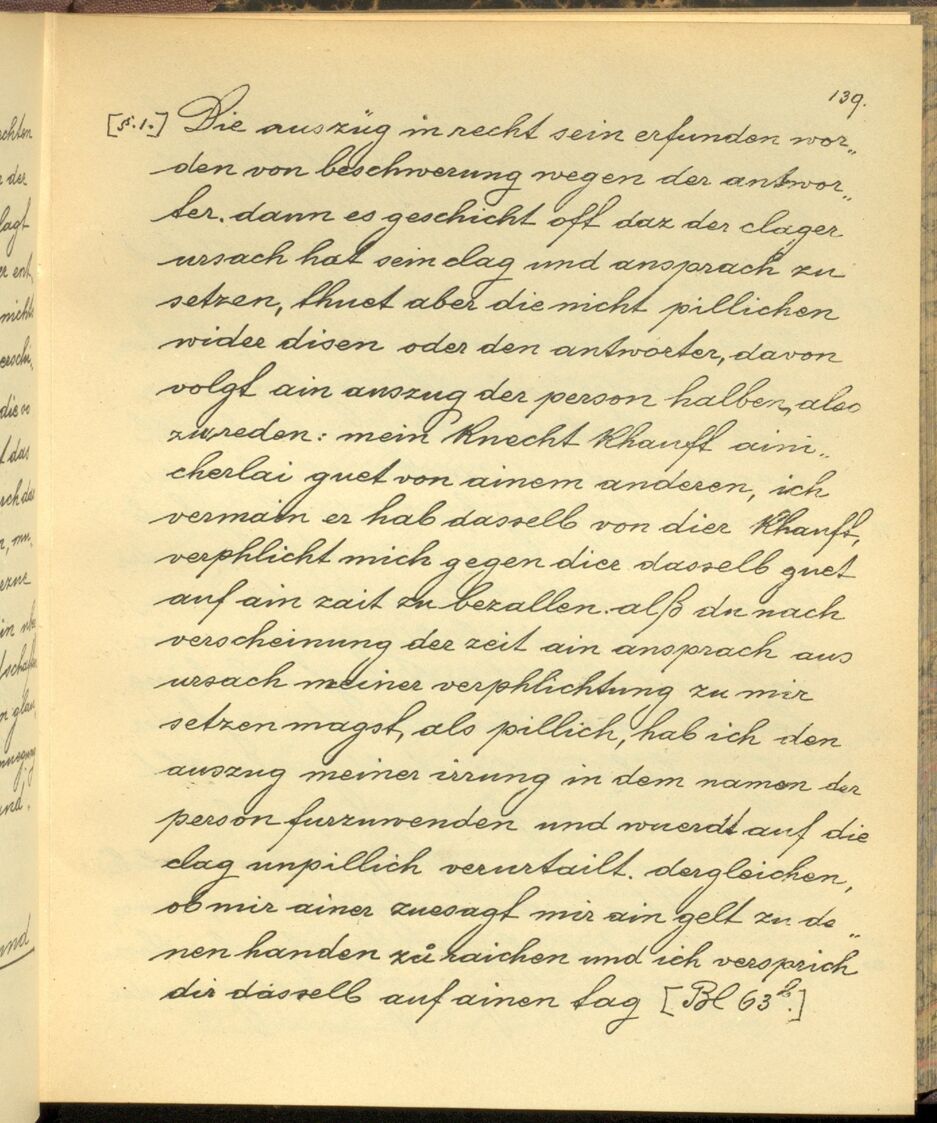 139.
[§.1.] Die auszüg in recht sein erfunden wor„
den von beschwerung wegen der antwor„
ter. dann es geschicht oft daz der clager
ursach hat sein clag und ansprach zu
setzen, thuet aber die nicht pillichen
wider disen oder den antworter, davon
volgt ain auszug der person halben, also
zureden: mein Knecht Khauft aini„
cherlai guet von ainem anderen, ich
vermain er hab dasselb von dier Khauft,
verphlicht mich gegen dier dasselb guet
auf ain zait zu bezallen. alß du nach
verscheinung der zeit ain ansprach aus
ursach meiner verphlichtung zu mir
setzen magst, als pillich, hab ich den
auszug meiner irrung in dem namen der
person furzuwenden und wuerdt auf die
clag unpillich verurtailt. dergleichen,
ob mir ainer zuesagt mir ain gelt zu de„
nen handen zů raichen und ich versprich
dir dasselb auf ainen tag [Bl 63b.]